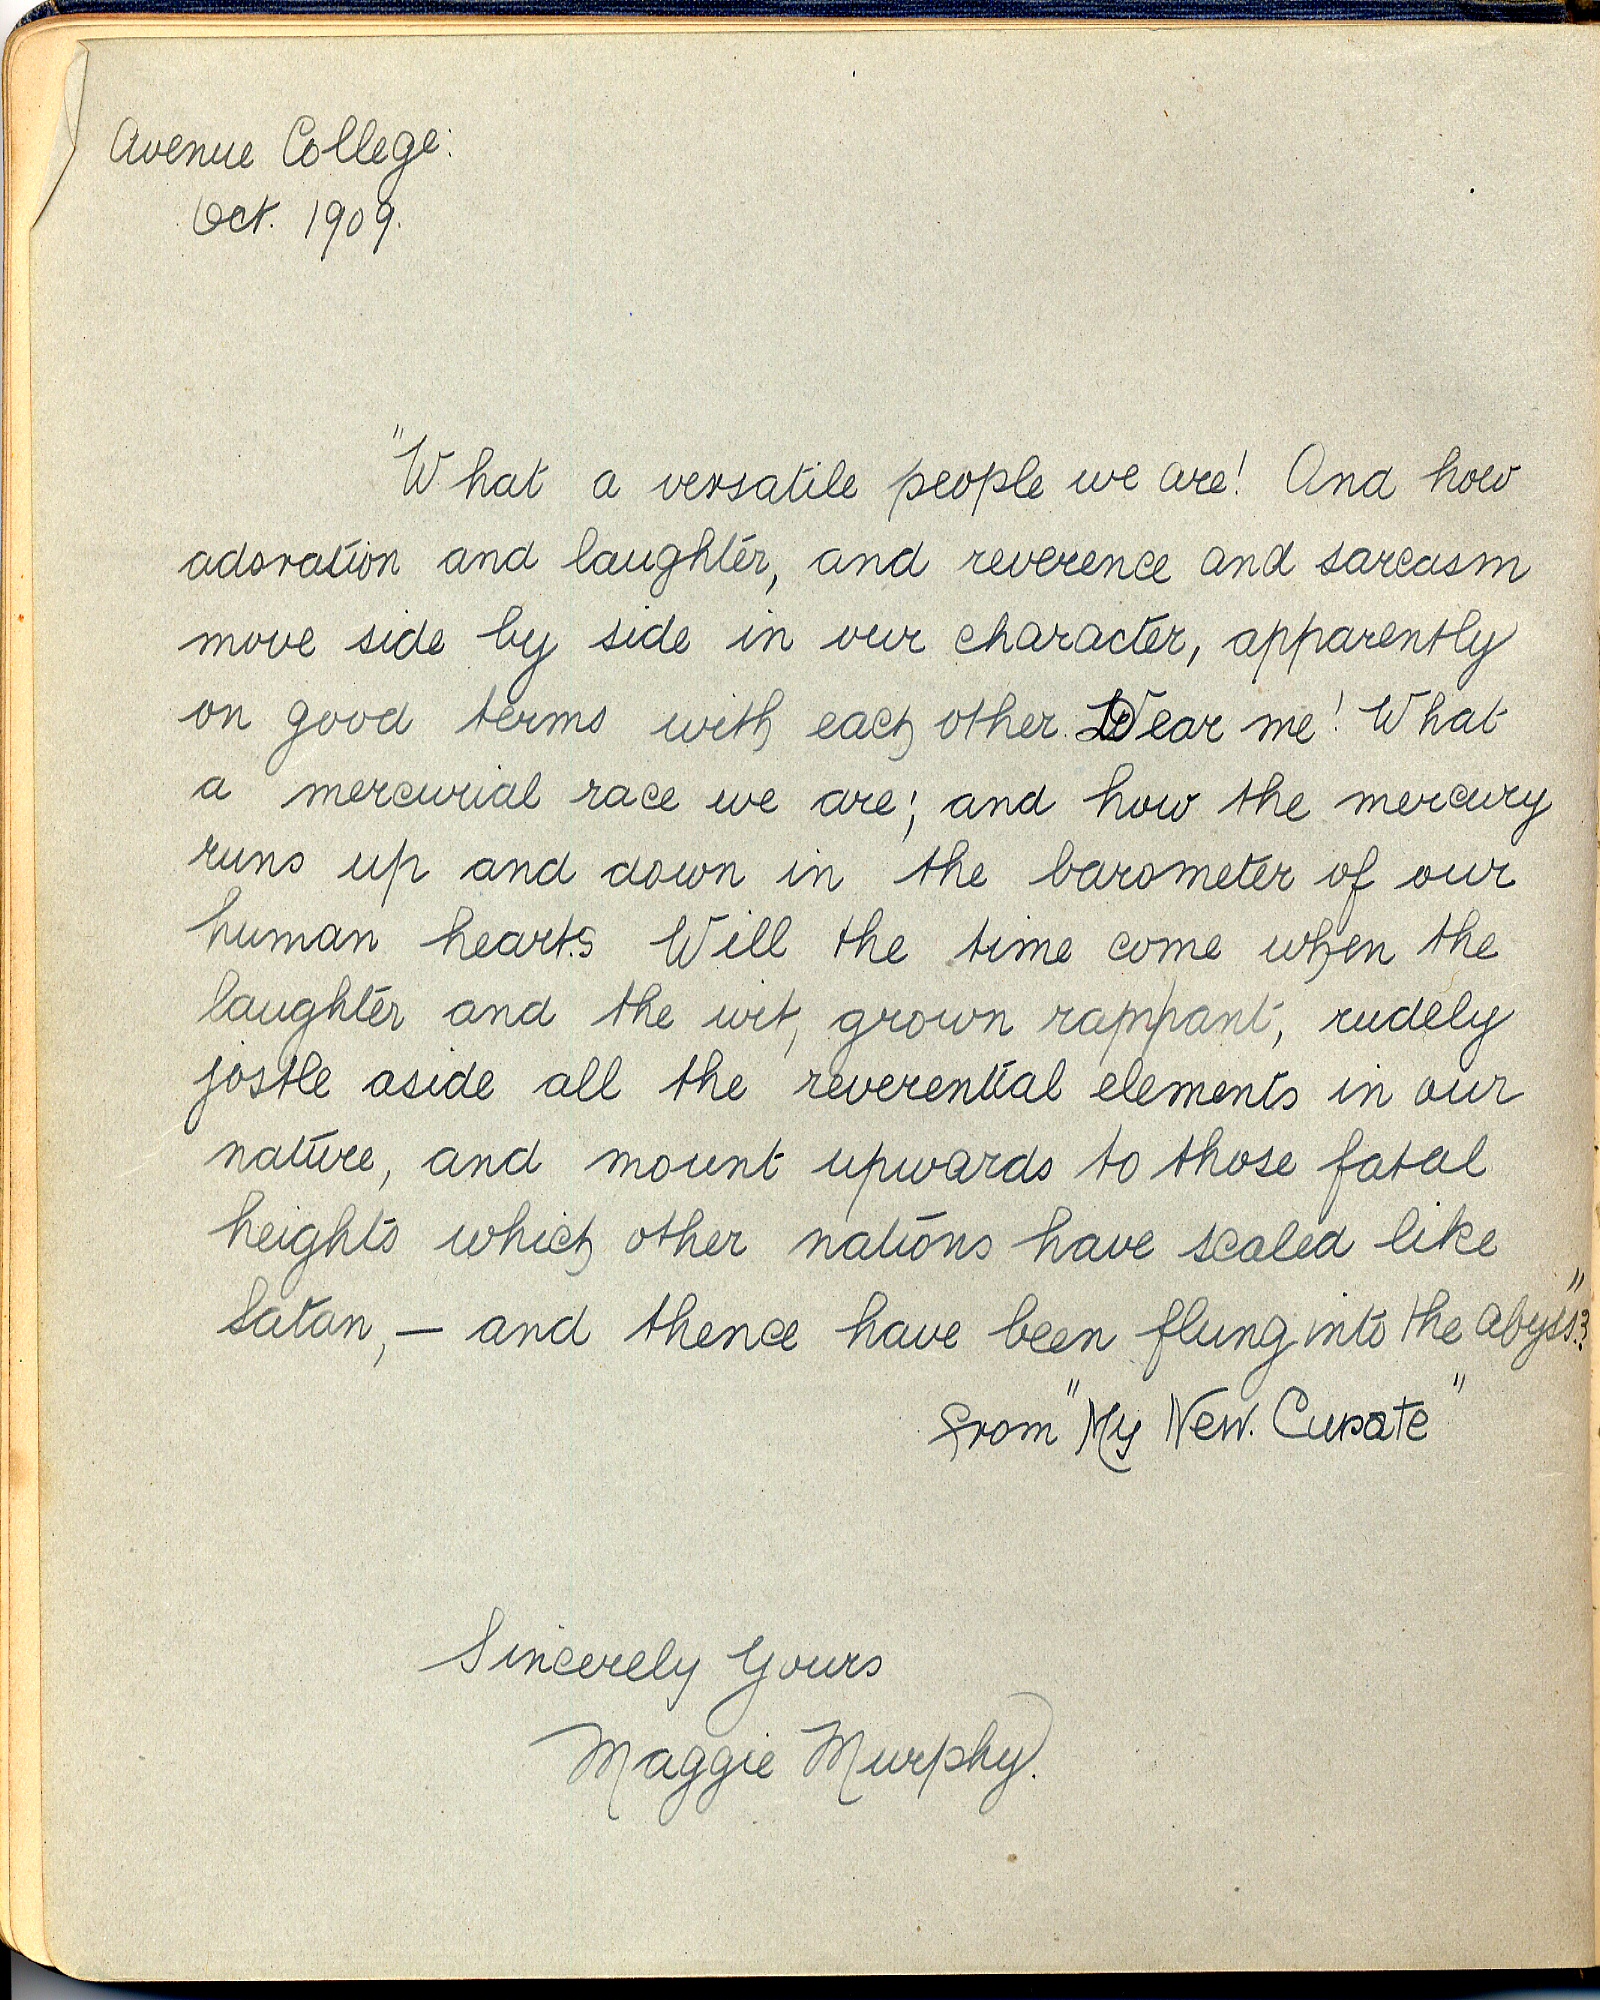 Avenue College:
Oct. 1909.
"What a versatile people we are! And how
adoration and laughter, and reverence and sarcasm
move side by side in our character, apparently
on good terms with each other. Dear me! What
a mercurial race we are; and how the mercury
runs up and down in the barometer of our
human hearts Will the time come when the
laughter and the wit, grown rappant, rudely
jostle aside all the reverential elements in our
nature, and mount upwards to those fatal
heights which other nations have scaled like
Satan, — and thence have been flung into the abyss"?
from "My New. Curate"
Sincerely Yours
Maggie Murphy.